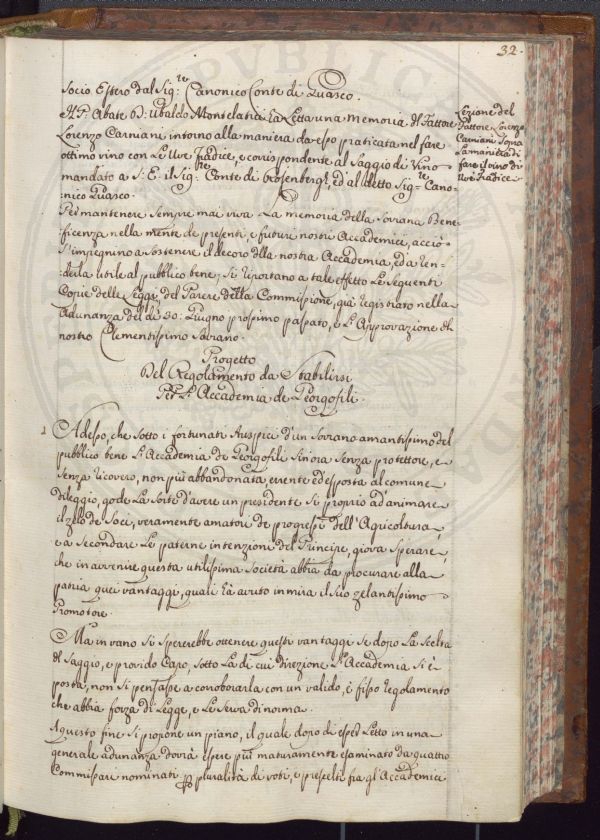 32.
Socio Estero dal Sig:re Canonico Conte di Guasco.
Il P: Abate D: Ubaldo Montelatici ha Letta una Memoria del Fattore
Lorenzo Carniani intorno alla maniera da esso praticata nel fare
ottimo vino con Le Uve Fradice, e corrispondente al Saggio di Vino
mandato a S: E: il Sig:re Conte di Rosenberg, ed al detto Sig:re Cano=
=nico Guasco.
Lezione del
Fattore Lorenzo
Carniani Sopra
La maniera di
fare il vino di
Uve Fradice
Per mantenere Sempre mai viva La memoria della Sovrana Bene=
ficenza nella mente de presenti, e futuri nostri Accademici, acciò
S'impegnino a Sostenere il decoro della nostra Accademia, ed a ren=
derla utile al pubblico bene, Si riportano a tale effetto Le Seguenti
Copie delle Leggi, del Parere della Commissione, già registrato nella
Adunanza del di 30. Giugno prossimo passato, e L'Approvazione del
nostro Clementissimo Sovrano.
Progetto
Del Regolamento da Stabilirsi
Per L'Accademia de Georgofili.
1 Adesso, che Sotto i fortunati Auspici d'un Sovrano amantissimo del
pubblico bene L'Accademia de Georgofili Sinora Senza protettore, e
Senza ricovero, non più abbandonata, errente ed esposta al comune
dileggio, gode La Sorte d'avere un presidente Si proprio ad animare
il zelo de Soci, veramente amatori de progressi dell'Agricoltura,
e a Secondare Le paterne intenzione del Principe, giova Sperare,
che in avvenire questa utilissima Società abbia da procurare alla
patria quei vantaggi, quali hà avuto in mira il Suo zelantissimo
Promotore.
Ma in vano Si Spererebbe ottenere questi vantaggi Se dopo La Scelta
del Saggio, e provido Capo, Sotto La di cui direzione L'Accademia Si è
posta, non Si pensasse a corroborarla con un valido, e fisso regolamento
che abbia forza di Legge, e Le Serva di norma.
A questo fine Si propone un piano, il quale dopo di esser Letto in una
generale adunanza dovrà essere più maturamente esaminato da quattro
Commissari nominati per pluralità di voti, e prescelti fra gl'Accademici